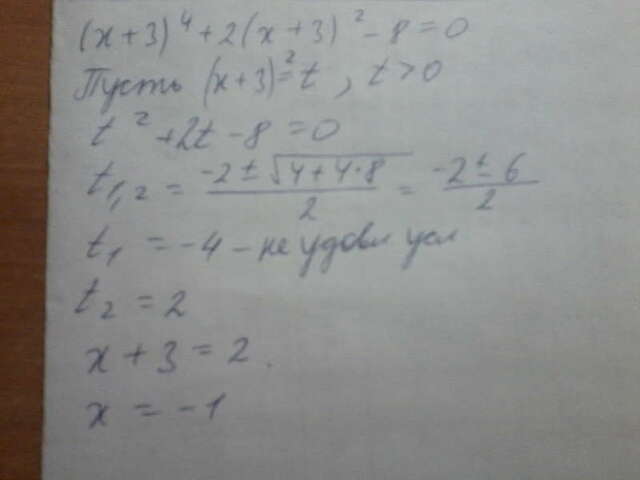 (x+3)⁴+2(x+3)²-8=0
Пусть (x+3)²=t, t>0
t²+2t-8=0
t₁,₂ = (-2±√(4+4·8))/2 = (-2±6)/2
t₁ = -4 - не удовл усл
t₂ = 2
x+3=2.
x = -1